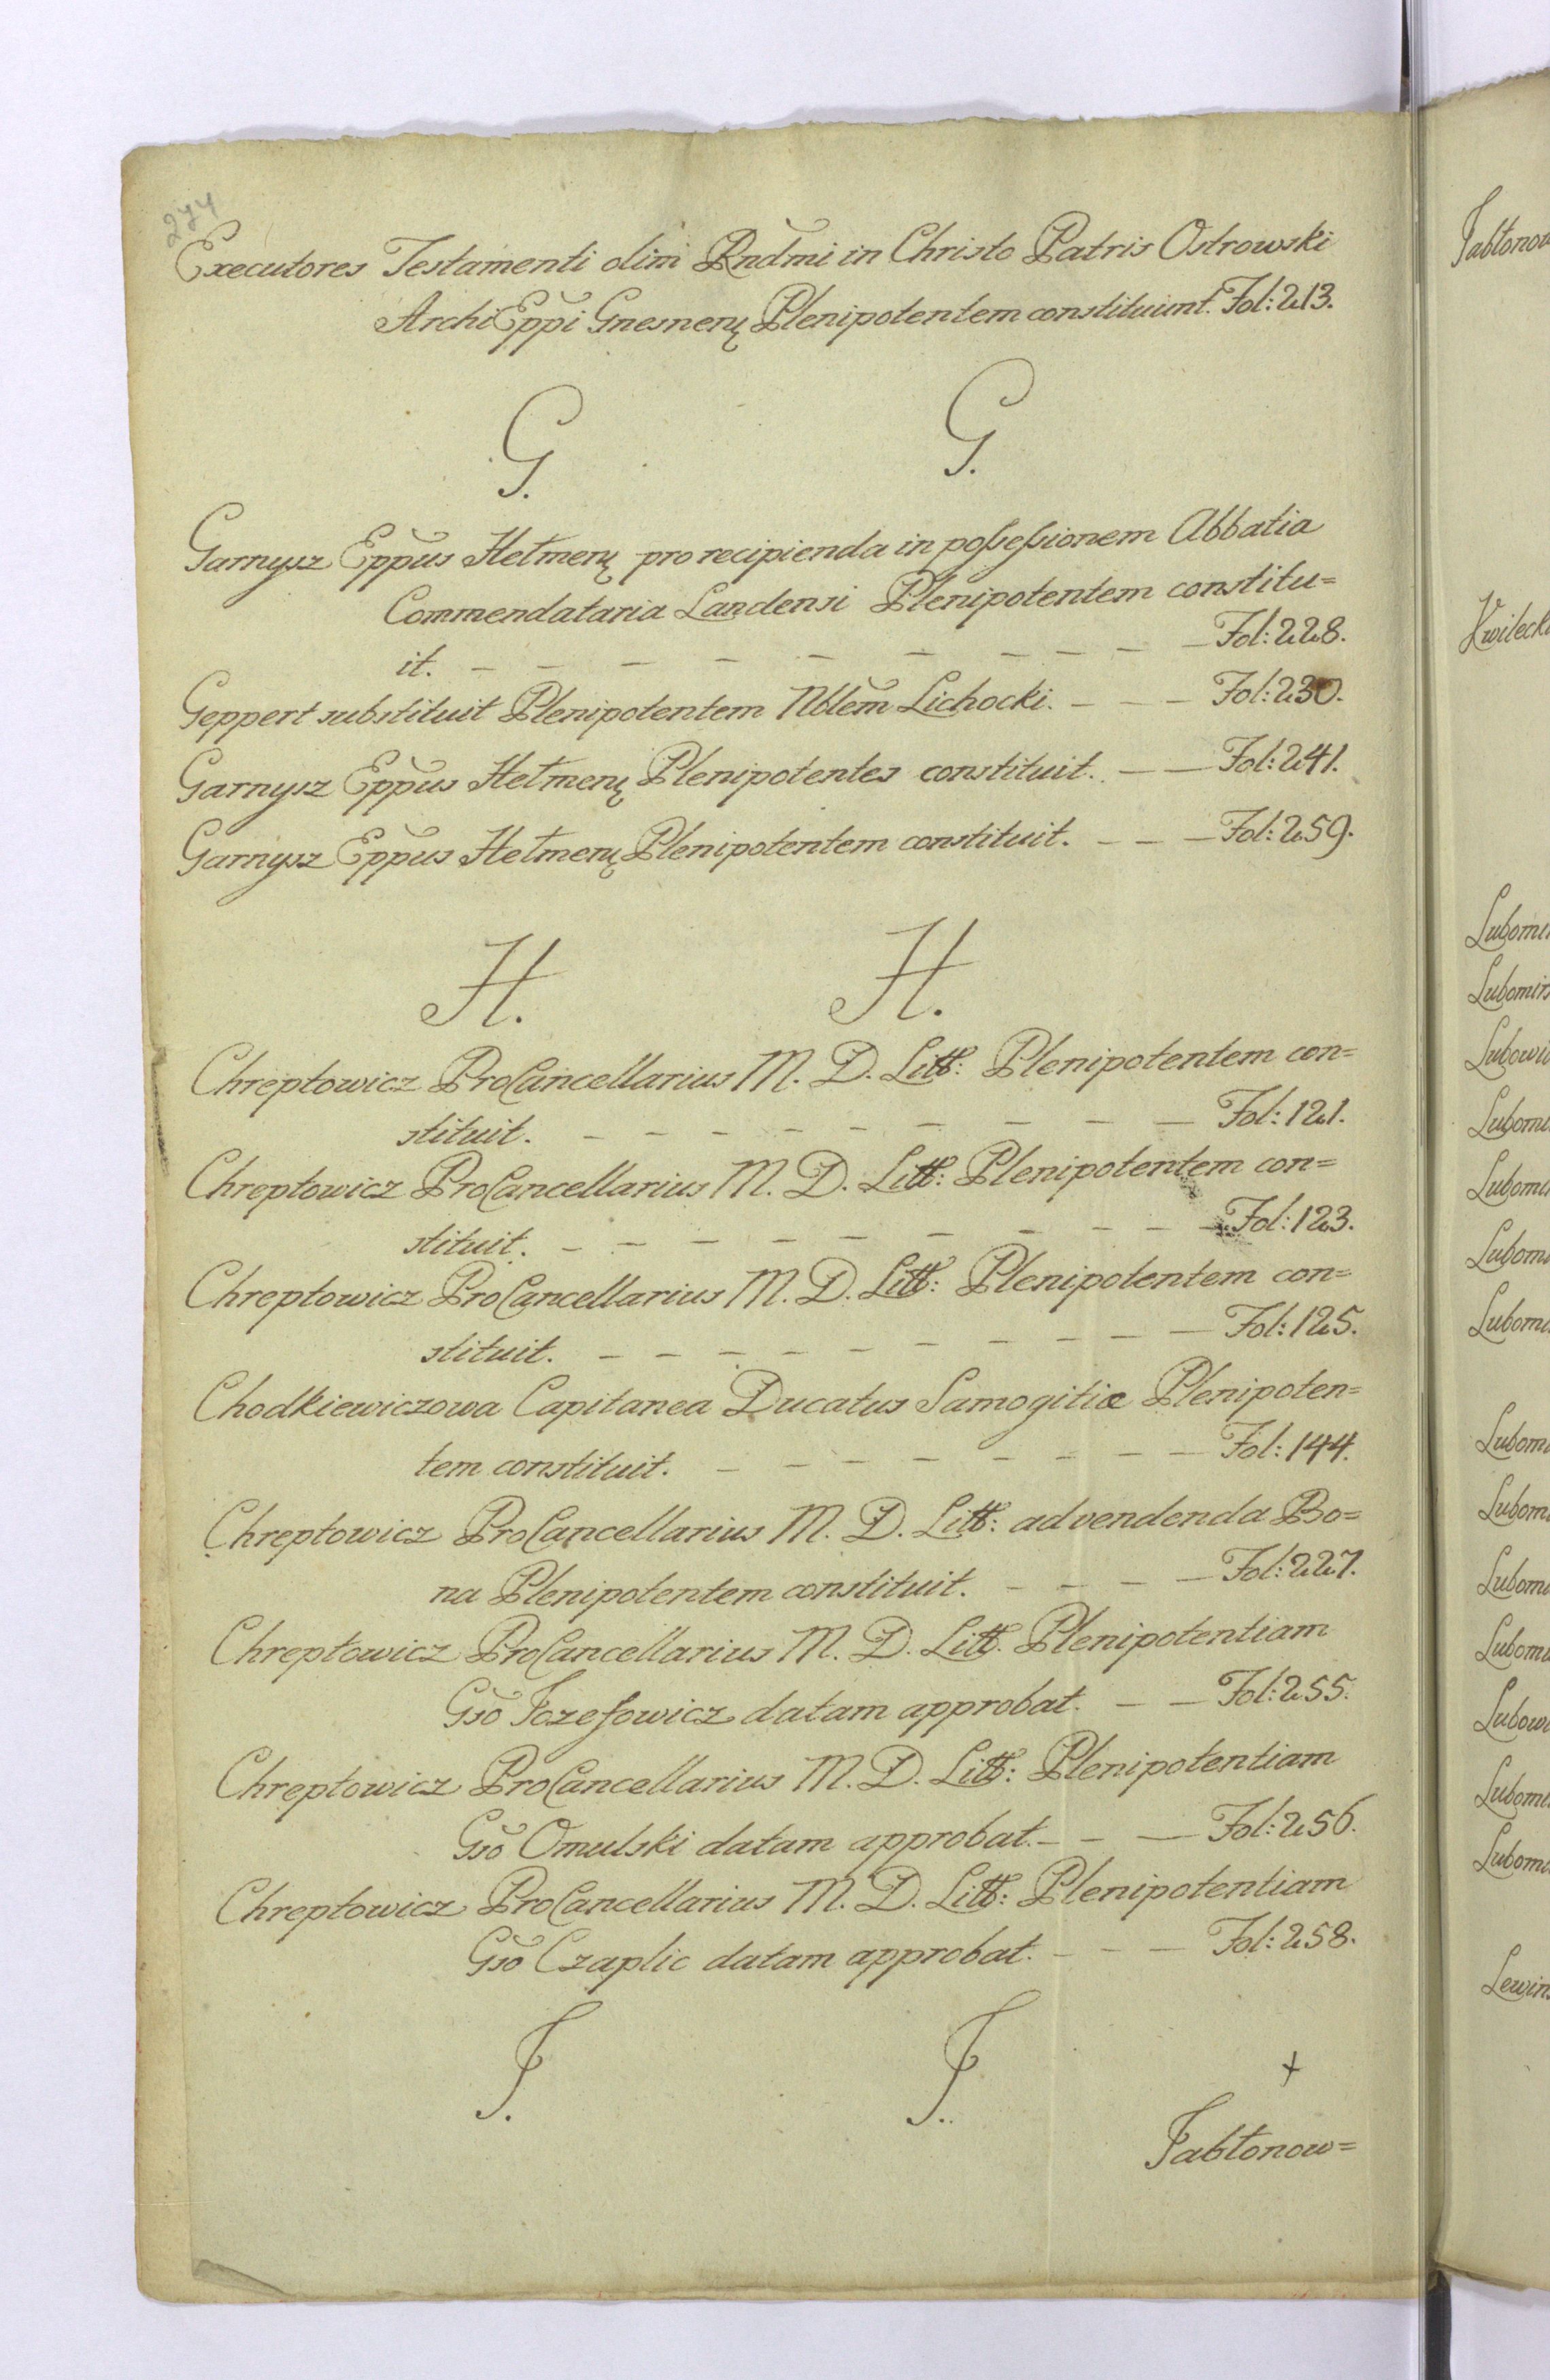 274
Executores Testamenti olim Rndmi in Christo Patris Ostrowski
ArchiEppi Gnesnen Plenipotentem constituunt. Fol: 213.
G. G.
Garnysz Eppus Hełmen pro recipienda in possessionem Abbatia
Commendataria Landensi Plenipotentem constitu=
it. – – – – – – – – – – Fol: 228.
Geppert substituit Plenipotentem Nblem Lichocki. – – – Fol: 230.
Garnysz Eppus Hełmen Plenipotentes constituit. – – Fol: 241.
Garnysz Eppus Hełmen Plenipotentem constituit. – – – Fol: 259.
H. H.
Chreptowicz ProCancellarius M. D. Litt: Plenipotentem con=
stituit. – – – – – – – – – – Fol: 121.
Chreptowicz ProCancellarius M. D. Litt: Plenipotentem con=
stituit. – – – – – – – – – – Fol: 123.
Chreptowicz ProCancellarius M. D. Litt: Plenipotentem con=
stituit. – – – – – – – – – – Fol: 125.
Chodkiewiczowa Capitanea Ducatus Samogitiæ Plenipoten=
tem constituit. – – – – – – – – Fol: 144.
Chreptowicz ProCancellarius M. D. Litt: ad vendenda Bo=
na Plenipotentem constituit. – – – – Fol: 227.
Chreptowicz ProCancellarius M. D. Litt. Plenipotentiam
Gso Jozefowicz datam approbat. – – Fol: 255.
Chreptowicz ProCancellarius M. D. Litt: Plenipotentiam
Gso Omulski datam approbat. – – – Fol: 256.
Chreptowicz ProCancellarius M. D. Litt: Plenipotentiam
Gso Czaplic datam approbat. – – – Fol: 258.
J. J.
Jabłonow=
Jabłonow
Kwileck
Lubomi
Lubomirs
Lubowi
Lubomi
Lubomi
Lubomi
Lubomi
Lubomi
Lubomi
Lubomi
Lubomi
Lubowi
Lubomi
Lubomi
Lewins